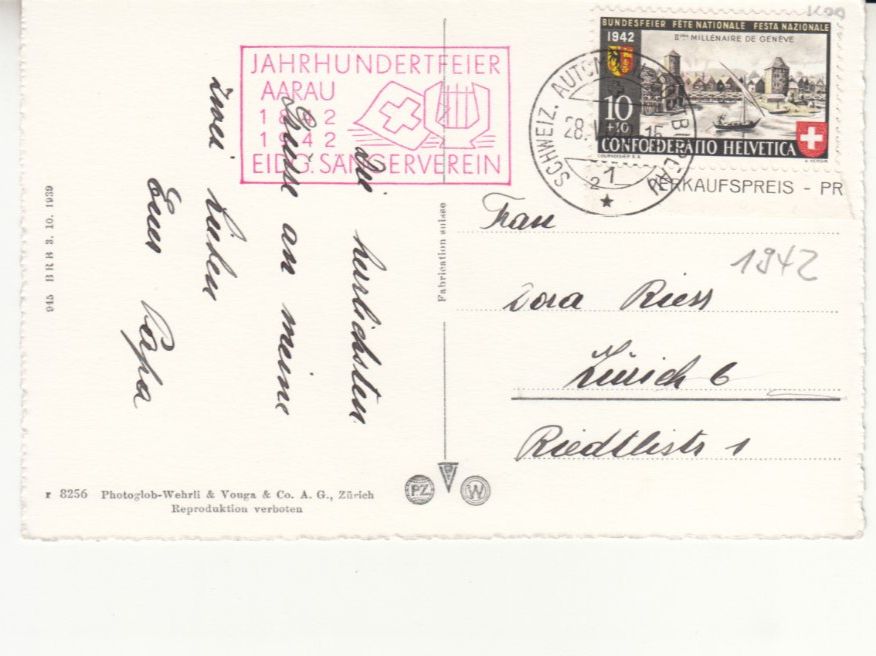 JAHRHUNDERTFEIER
AARAU
1842
1942
EIDG. SÄNGERVEREIN
BUNDESFEIER FÊTE NATIONALE FESTA NAZIONALE
1942
IIme MILLÉNAIRE DE GENÈVE
10
+10
CONFOEDERATIO HELVETICA
COURVOISIER S.A.
SCHWEIZ. AUTOMOBIL-POSTBUREAU
28. 16
1
2
VERKAUFSPREIS - PR
1942
Die herzlichsten
Grüsse an meine
zwei Lieben
Euer Papa
Frau
Dora Riess
Zürich 6
Riedtlistr 1
945 BRB 3. 10. 1939
Fabrication suisse
r 8256 Photoglob-Wehrli & Vouga & Co. A. G., Zürich
Reproduktion verboten
PZ
W